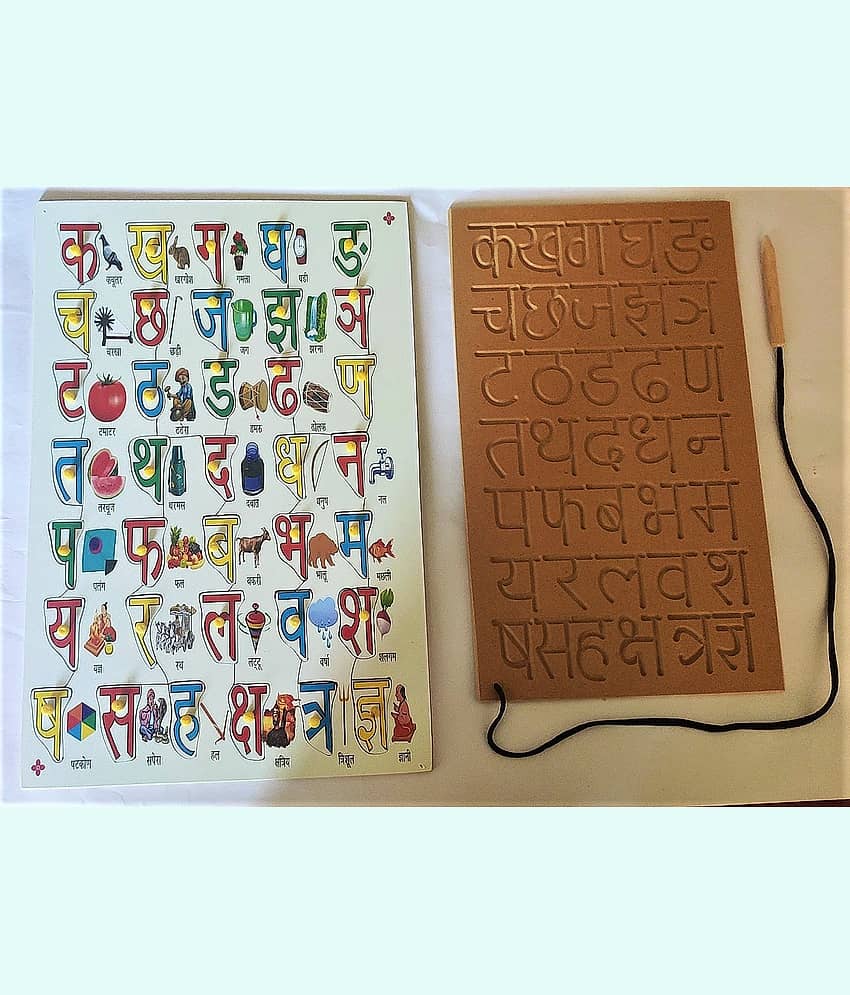 क ख ग घ ङ
कबूतर खरगोश गमला घड़ी
च छ ज झ ञ
चरखा छड़ी जग झरना
ट ठ ड ढ ण
टमाटर ठठेरा डमरू ढोलक
त थ द ध न
तरबूज थरमस दवात धनुष नल
प फ ब भ म
पतंग फल बकरी भालू मछली
य र ल व श
यज्ञ रथ लट्टू वर्षा शलगम
ष स ह क्ष त्र ज्ञ
षटकोण सपेरा हल क्षत्रिय त्रिशूल ज्ञानी
क ख ग घ ङ
च छ ज झ ञ
ट ठ ड ढ ण
त थ द ध न
प फ ब भ म
य र ल व श
ष स ह क्ष त्र ज्ञ